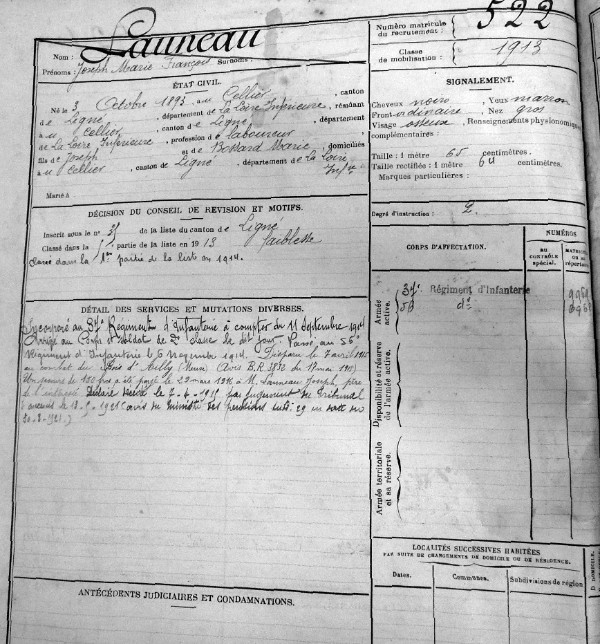 Launeau
Nom :
Prénoms : Joseph Marie François Surnoms :
ÉTAT CIVIL.
Né le 3 Octobre 1893, au Cellier, canton
de Ligné, département de La Loire Inférieure, résidant
au Cellier, canton de Ligné, département
de La Loire Inférieure, profession de laboureur
fils de Joseph et de Bossard Marie, domiciliés
au Cellier, canton de Ligné, département de La Loire
Infre
Marié à
DÉCISION DU CONSEIL DE REVISION ET MOTIFS.
Inscrit sous le no 31 de la liste du canton de Ligné
Classé dans la partie de la liste en 1913 faiblesse
Classé dans la 1re partie de la liste en 1914.
DÉTAIL DES SERVICES ET MUTATIONS DIVERSES.
Incorporé au Régiment d'Infanterie à compter du 11 Septembre 1914
Arrivé au Corps et soldat de 2e classe le dit jour. Passé au 56e
Régiment d'Infanterie le 6 Novembre 1914. Disparu le
au combat du Bois d'Ailly (Meuse) Avis
de 150 frs a été payé le 23 mars 1916 à M. Launeau Joseph, père
de l'intéressé Déclaré décédé le 7-4-1915 par jugement du Tribunal
avis du Ministre des pensions
Numéro matricule
du recrutement :
522
Classe
de mobilisation :
1913
SIGNALEMENT.
Cheveux noirs, Yeux marron
Front ordinaire, Nez gros
Visage osseux, Renseignements physionomiques
complémentaires :
Taille : 1 mètre 65 centimètres.
Taille rectifiée : 1 mètre 64 centimètres.
Marques particulières :
Degré d'instruction : 2.
CORPS D'AFFECTATION.
NUMÉROS
AU
CONTRÔLE
spécial.
Armée
active.
Régiment d'Infanterie
56 do
Disponibilité et réserve
de l'armée active.
Armée territoriale
et sa réserve.
LOCALITÉS SUCCESSIVES HABITÉES
PAR SUITE DE CHANGEMENTS DE DOMICILE OU DE RÉSIDENCE.
Dates.
Communes.
Subdivisions de région
ANTÉCÉDENTS JUDICIAIRES ET CONDAMNATIONS.